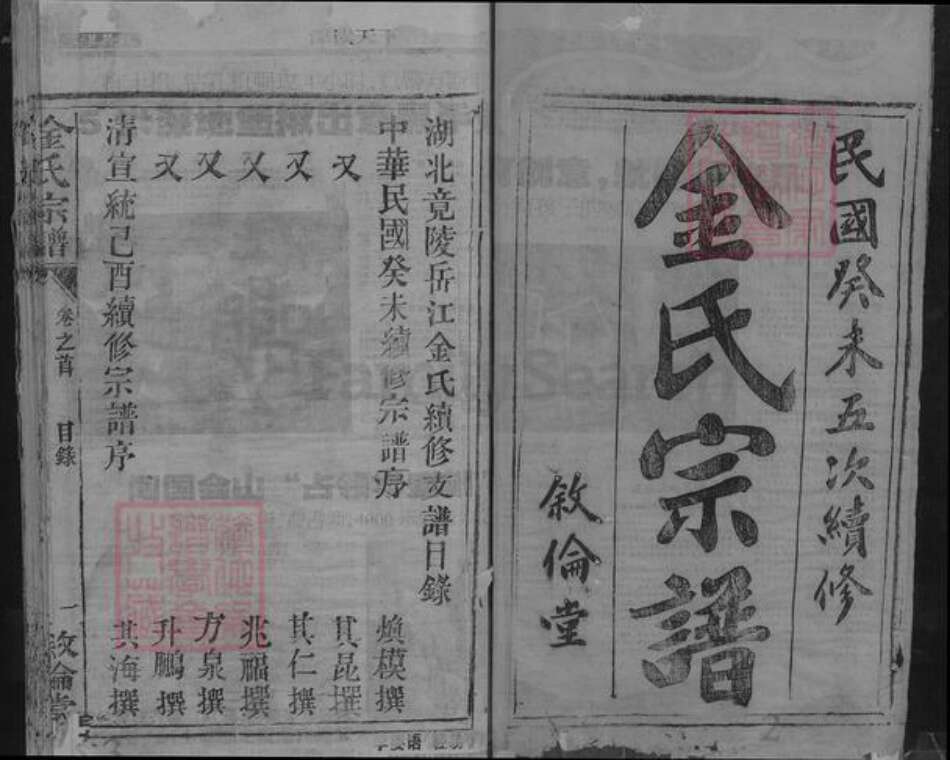 民國癸未五次續修
金氏宗譜
敘倫堂
湖北竟陵岳江金氏續修支譜目錄
中華民國癸未續修宗譜序 煥模撰
又 其昆撰
又 其仁撰
又 兆福撰
又 方泉撰
又 升鵬撰
清宣統己酉續修宗譜序 其海撰
金氏宗譜 卷之首 目錄 一 敘倫堂